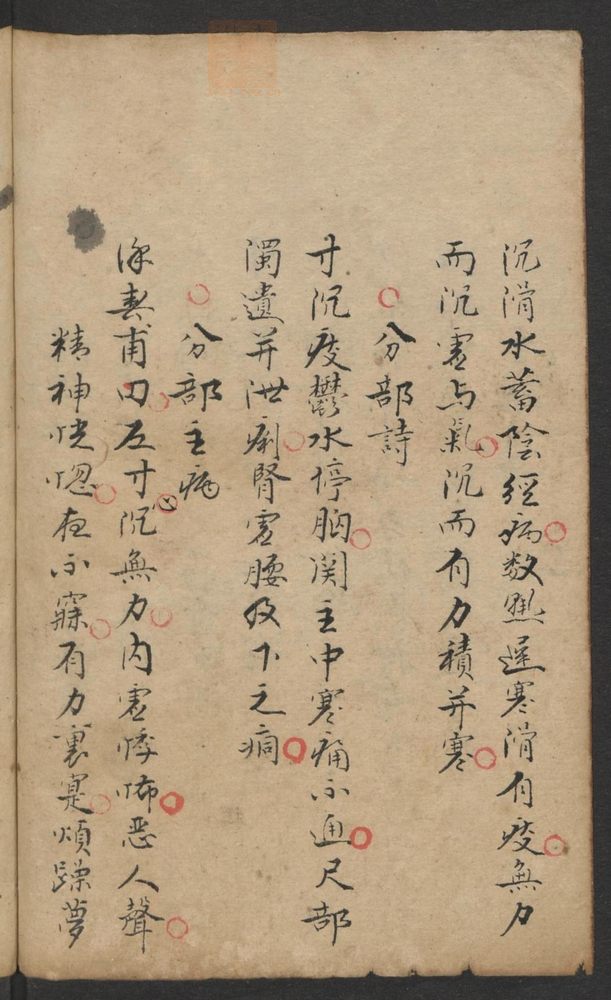 沉滑水蓄陰經病数熱遅寒滑有痰無力
而沉虚与氣沉而有力積并寒
分部詩
寸沉痰鬱水停胸関主中寒痛不通尺部
濁遺并泄痢腎虚腰及下之痾
分部主病
徐春甫曰左寸沉無力内虚悸怖恶人聲
精神恍惚夜不寐有力裏寔煩躁夢